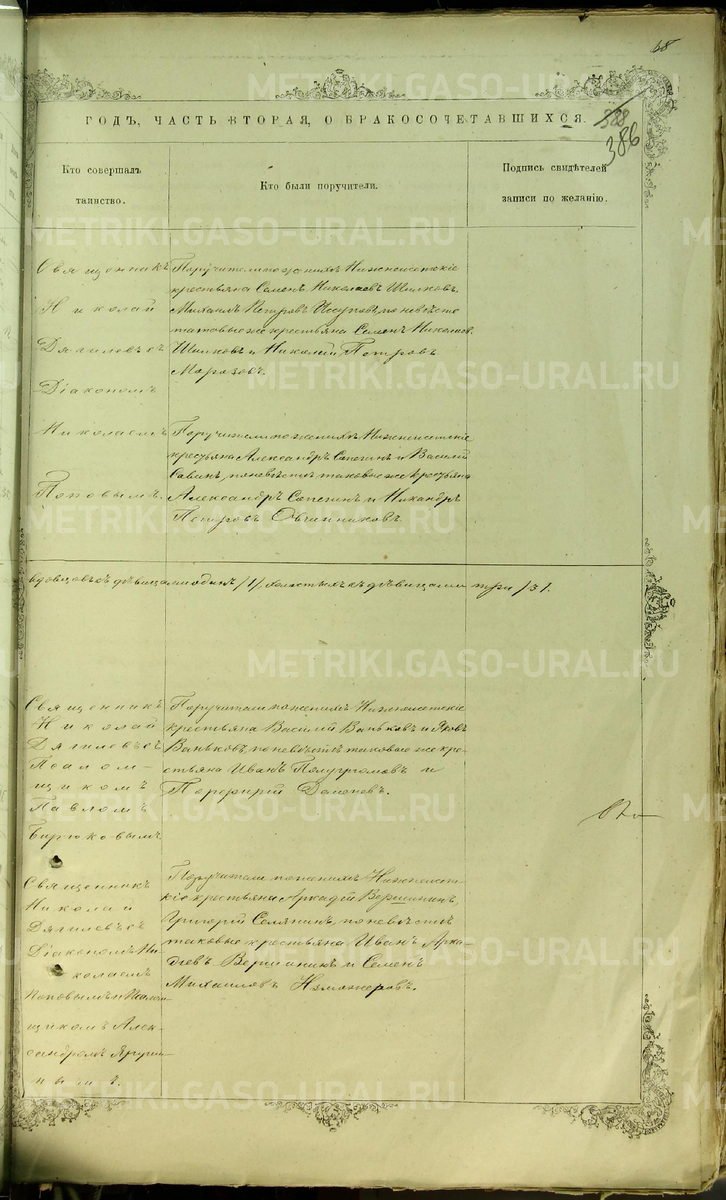 68
ГОДЪ, ЧАСТЬ ВТОРАЯ, О БРАКОСОЧЕТАВШИХСЯ.
388
386
Кто совершалъ
таинство.
Кто были поручители.
Подпись свидѣтелей
записи по желанію.
Священникъ
Николай
Дягилевъ съ
Діакономъ
Николаемъ
Поповымъ.
Поручители по женихѣ Нижнеисетскіе
крестьяне Семенъ Николаевъ Шилковъ,
Михаилъ Петровъ по невѣстѣ
таковые же крестьяне Семенъ Николаев
Шилковъ и Николай Петровъ
Морозовъ.
Поручители по женихѣ Нижнеисетскіе
крестьяне Александръ и Василій
Савинъ, по невѣстѣ таковые же крестьяне
Александръ и Никандръ
Петровъ Овчинниковъ.
вдовцовъ съ дѣвицами одинъ /1/, холостыхъ съ дѣвицами три /3/.
Священникъ
Николай
Дягилевъ съ
Псалом-
щикомъ
Павломъ
Бирюковымъ
Поручители по женихѣ Нижнеисетскіе
крестьяне Василій Ваньковъ и Яковъ
Ваньковъ, по невѣстѣ таковые же кре-
стьяне Иванъ и
Порфирій
Священникъ
Николай
Дягилевъ съ
Діакономъ Ни-
колаемъ
Поповымъ и Псалом-
щикомъ Алек-
сандромъ
Поручители по женихѣ Нижнеисет-
скіе крестьяне Аркадій Вершининъ,
Григорій Селянинъ, по невѣстѣ
таковые крестьяне Иванъ Арка-
діевъ Вершининъ и Семенъ
Михаиловъ
METRIKI.GASO-URAL.RU